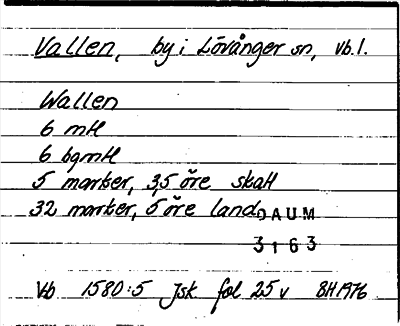 Vallen, by i Lövånger sn, vb. l.
Wallen
6 mtl
6 bgmtl
5 marker, 3,5 öre skatt
32 marker, 5 öre land
DAUM
3163
Vb 1580:5 Jsk fol 25 v BH 1976